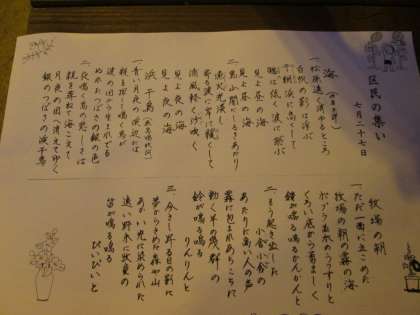 区民の集い
七月二十七日
海
(文部省唱歌)
一 松原遠く消ゆるところ
白帆の影は浮ぶ
干網浜に高くして
低く波に飛ぶ
見よ昼の海
見よ昼の海
二 島山闇にしるきあたり
漁火光淡し
寄る波岸に緩くして
浦風軽く沙吹く
見よ夜の海
見よ夜の海
浜千鳥
一 青い月夜の浜辺には
親を探して鳴く鳥が
波の国から生れでる
ぬれたつばさの銀の色
二 夜鳴く鳥の悲しさは
親を尋ねて海こえて
月夜の国へ消えてゆく
銀のつばさの浜千鳥
牧場の朝
一 ただ一面に立ちこめた
牧場の朝の霧の海
ポプラ並木のうっすりと
黒い底から勇ましく
鐘が鳴る鳴るかんかんと
二 もう起き出した
小舎小舎の
あたりに高い人の声
霧に包まれあちこちに
動く羊の幾群の
鈴が鳴る鳴る
りんりんと
三 今さし昇る日の影に
夢からさめた森や山
あかい光に染められた
遠い野末に牧童の
笛が鳴る鳴る
ぴいぴいと